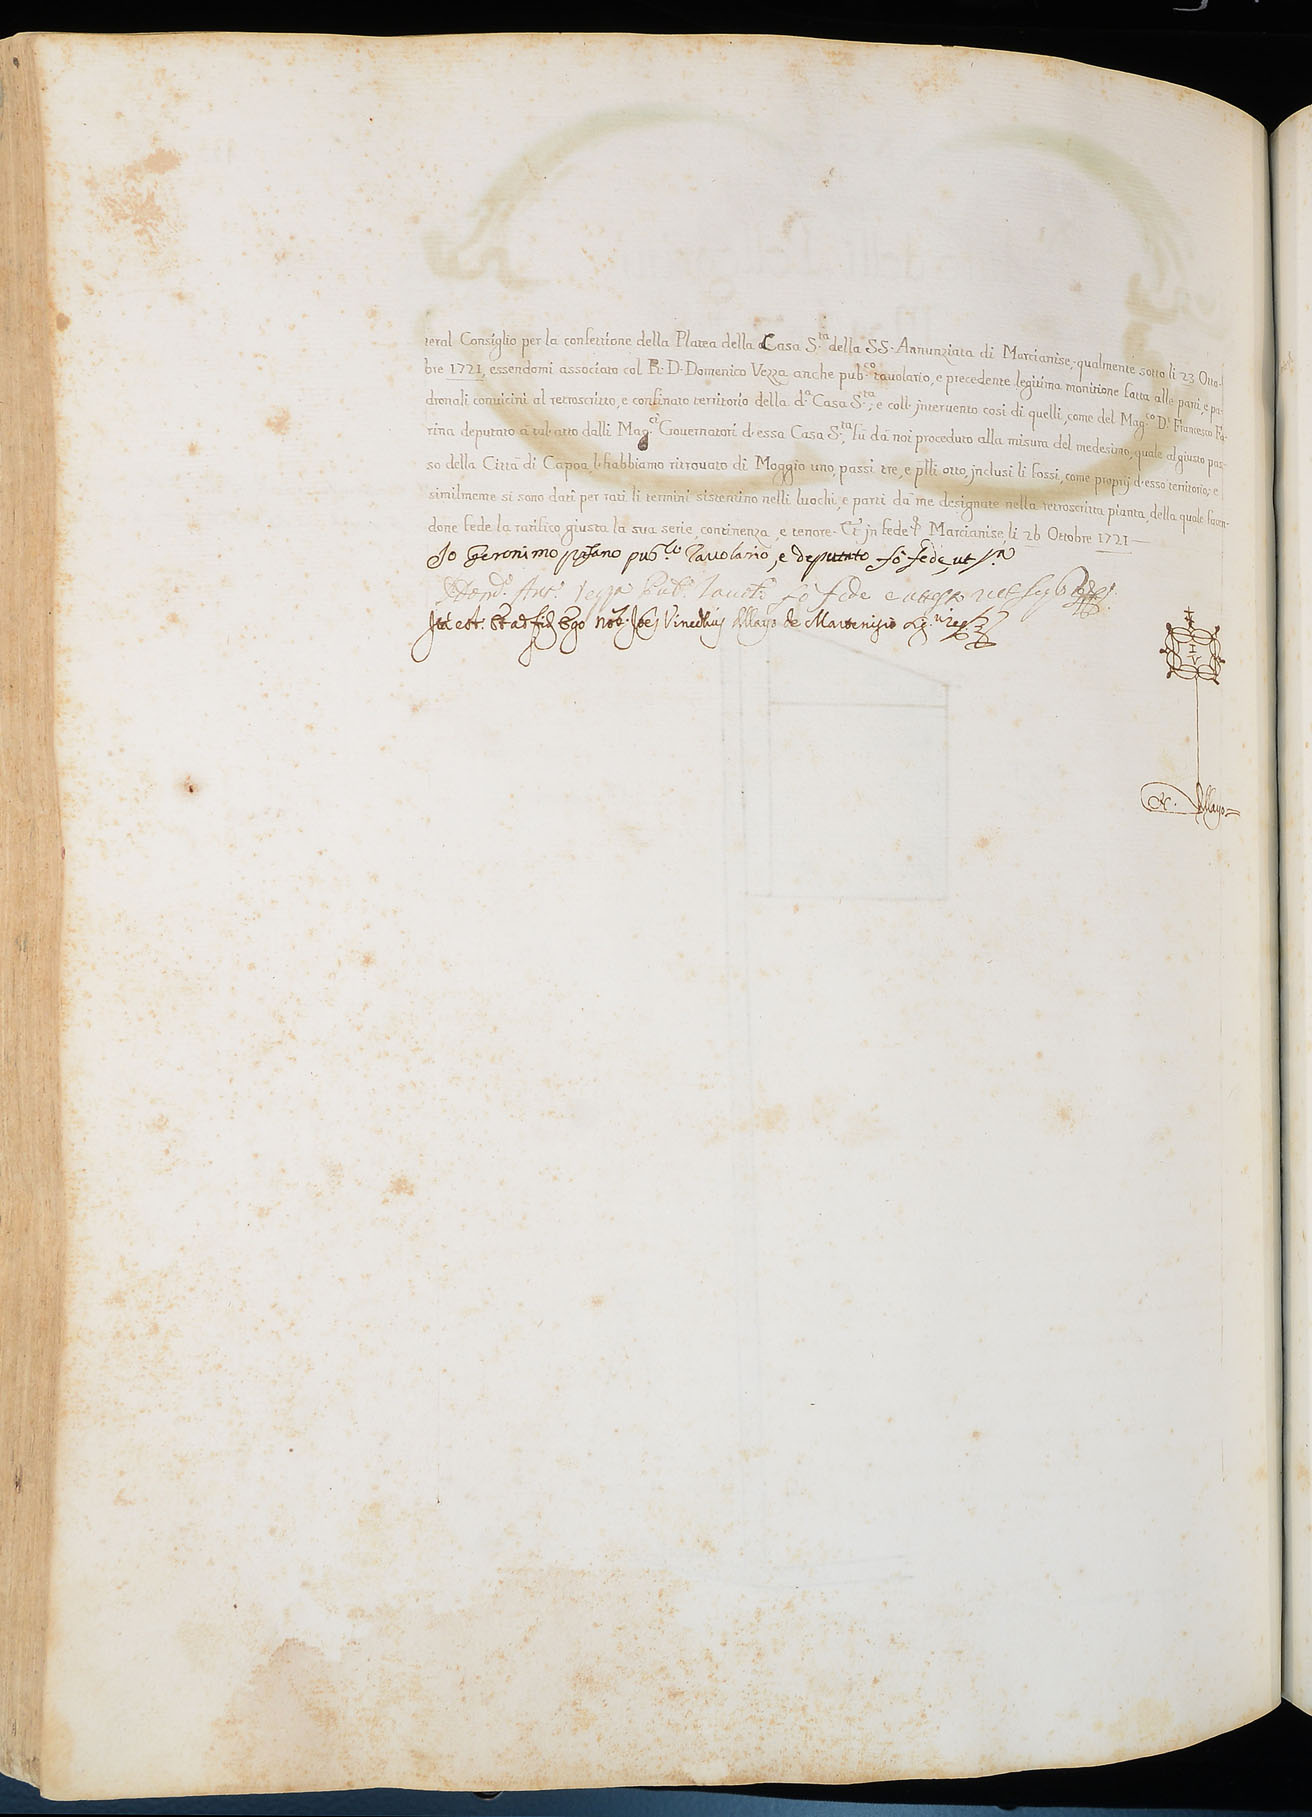 teral Consiglio per la confettione della Platea della Casa S.ta della SS. Annunziata di Marcianise, qualmente sotto li 23 Otto-
bre 1721, essendomi associato col R. D. Domenico Vezza anche pub.co tavolario, e precedente legitima monitione fatta alle parti, e pa-
dronali convicini al retroscritto, e confinato territorio della d.a Casa S.ta, e coll'intervento così di quelli, come del Mag.co D.r Francesco Fa-
rina deputato à tal atto dalli Mag.ci Governatori d'essa Casa S.ta, fù dà noi proceduto alla misura del medesimo, quale al giusto pas-
so della Città di Capoa, l'habbiamo ritrovato di Moggio uno, passi tre, e p̃lli otto, jnclusi li fossi, come proprij d'esso territorio; e
similmente si sono dati per rati li termini sistentino nelli luochi, e parti dà me designate nella retroscritta pianta, della quale facen-
done fede la ratifico giusta la sua serie, continenza, e tenore. Et jn fede &. Marcianise, li 26 Ottobre 1721
Io Geronimo pub.co Tavolario, e deputato fò fede, ut s.a
Vezza Pub. fò fede
Ita est. Et ad fid. Ego Not. Joẽs Vincentius de Martenisio
I V
N.